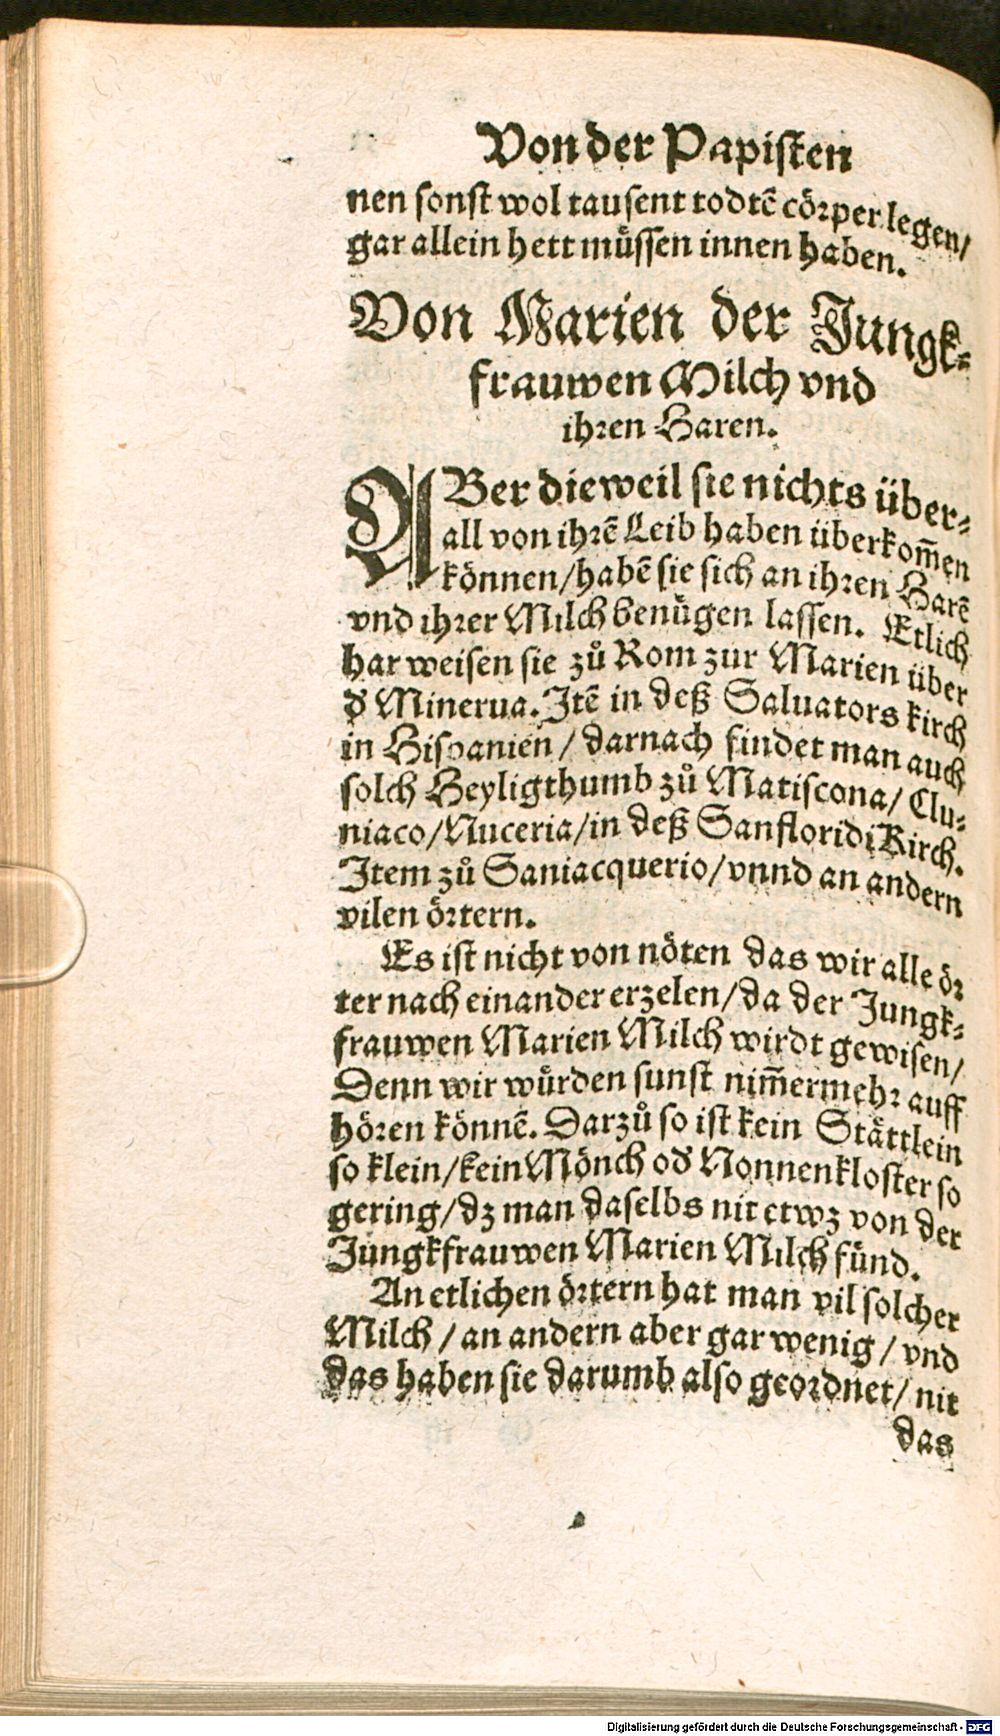 Von der Papisten
nen sonst wol tausent todtē cörper legen/
gar allein hett müssen innen haben.
Von Marien der Jungk-
frauwen Milch vnd
ihren Haren.
ABer dieweil sie nichts über-
all von ihrē Leib haben überkom̄en
können/habē sie sich an ihren Harē
vnd ihrer Milch benügen lassen. Etlich
har weisen sie zů Rom zur Marien über
d̕ Minerua. Itē in deß Saluators kirch
in Hispanien / darnach findet man auch
solch Heyligthumb zů Matiscona/ Clu-
niaco/Nuceria/in deß Sanfloridi Kirch.
Item zů Saniacquerio/vnnd an andern
vilen örtern.
Es ist nicht von nöten das wir alle ör
ter nach einander erzelen/da der Jungk-
frauwen Marien Milch wirdt gewisen/
Denn wir würden sunst nim̄ermehr auff
hören könnē. Darzů so ist kein Stättlein
so klein/kein Mönch od̕ Nonnenkloster so
gering/dz man daselbs nit etwz von der
Jungkfrauwen Marien Milch fünd.
An etlichen örtern hat man vil solcher
Milch / an andern aber gar wenig / vnd
das haben sie darumb also geordnet/ nit
das
Digitalisierung gefördert durch die Deutsche Forschungsgemeinschaft - DFG